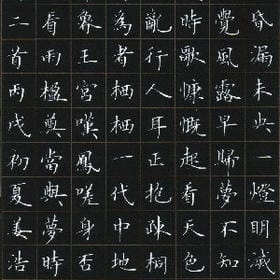 昏漏未央一燈明滅
覺風露早歸夢不知
時歌慷慨起看天色
亂行人耳正抱疎桐
為者栖栖一代中地
魯王宮嘆鳳嗟身否
看兩楹奠當與夢時
二首丙戌初夏姜浩